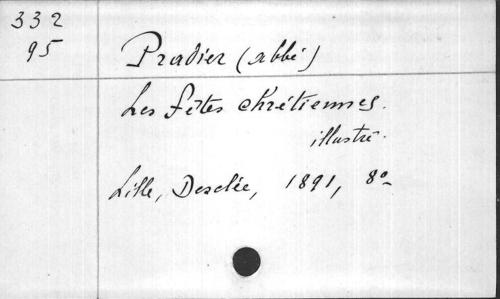 332
95
Pradier (abbé)
Les fêtes chrétiennes.
illustré.
Lille, Desclée, 1891, 8º